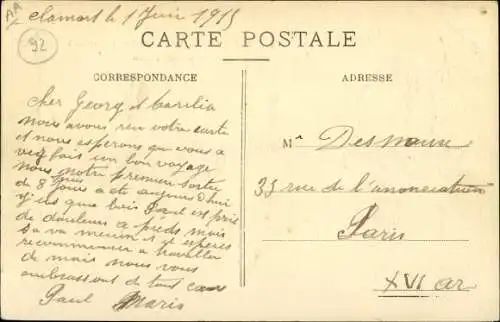 AA
Clamart le 1 Juin 1915
92
CARTE POSTALE
CORRESPONDANCE
ADRESSE
Cher Georg et
nous avons reu votre carte
et nous esperons que vous a
vez fait un bon voyage
nous notre premier sortie
de 8 jours a ete aujourd'hui
que bois Paul est pris
de douleurs a pieds mais
sa va et esperes
recommencer a travailler
de mais nous vous
embrassont de tout cœur
Paul Maris
Mr Desmouse
33 rue de l'anonciation
Paris
XVI ar